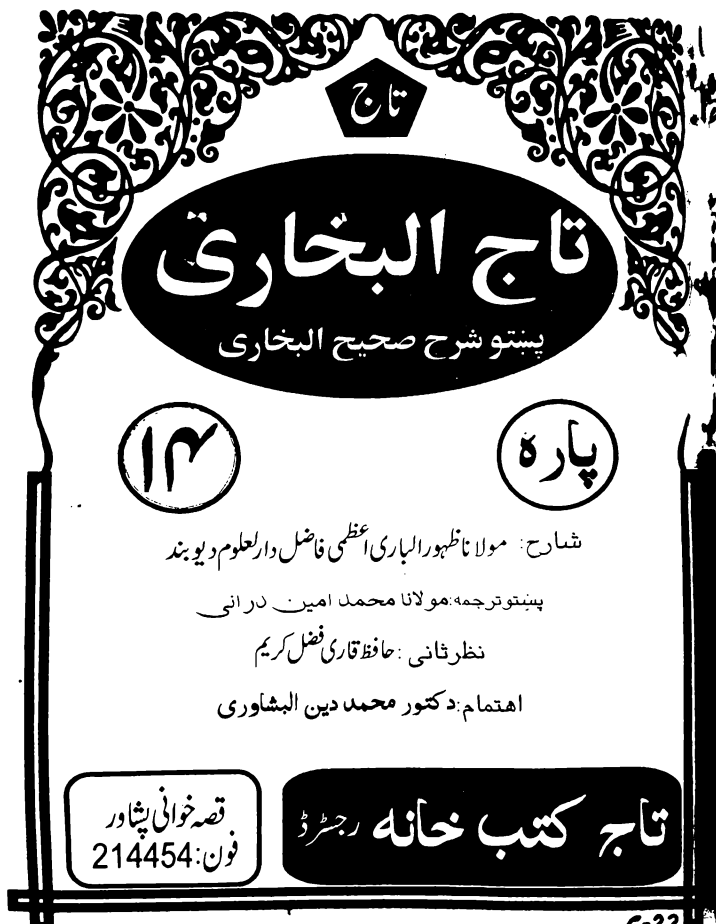 تاج
تاج البخاری
پښتو شرح صحیح البخاری
پاره ۱۴
شارح: مولانا ظہور الباری اعظمی فاضل دارلعلوم دیوبند
پښتو ترجمه: مولانا محمد امین درانی
نظر ثانی: حافظ قاری فضل کریم
اهتمام: دکتور محمد دین البشاوری
تاج کتب خانه رجسٹرڈ
قصہ خوانی پشاور
فون: 214454